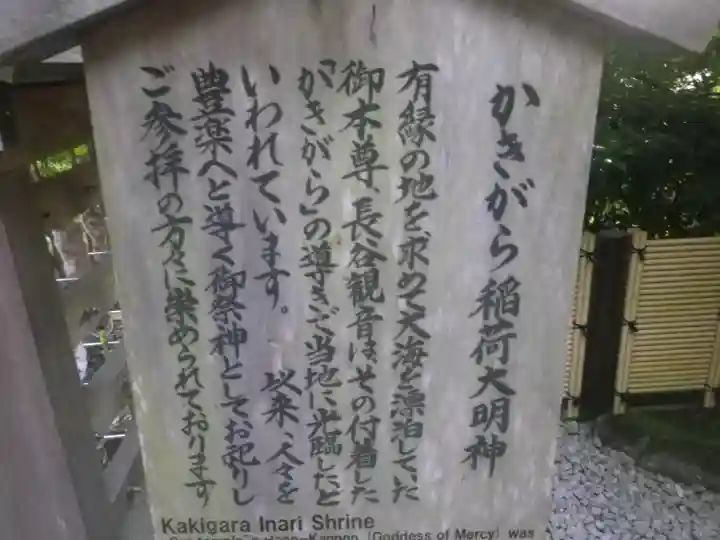 かきがら稲荷大明神
有縁の地を、求めて大海を漂泊していた
御本尊、長谷観音は、その付着した
「かきがら」の導きで当地に光臨した、と
いわれています。 以来、人々を
豊楽へと導く御祭神としてお祀りし
ご参拝の方々に崇められております
Kakigara Inari Shrine
Our temple's Hase-Kannon (Goddess of Mercy) was